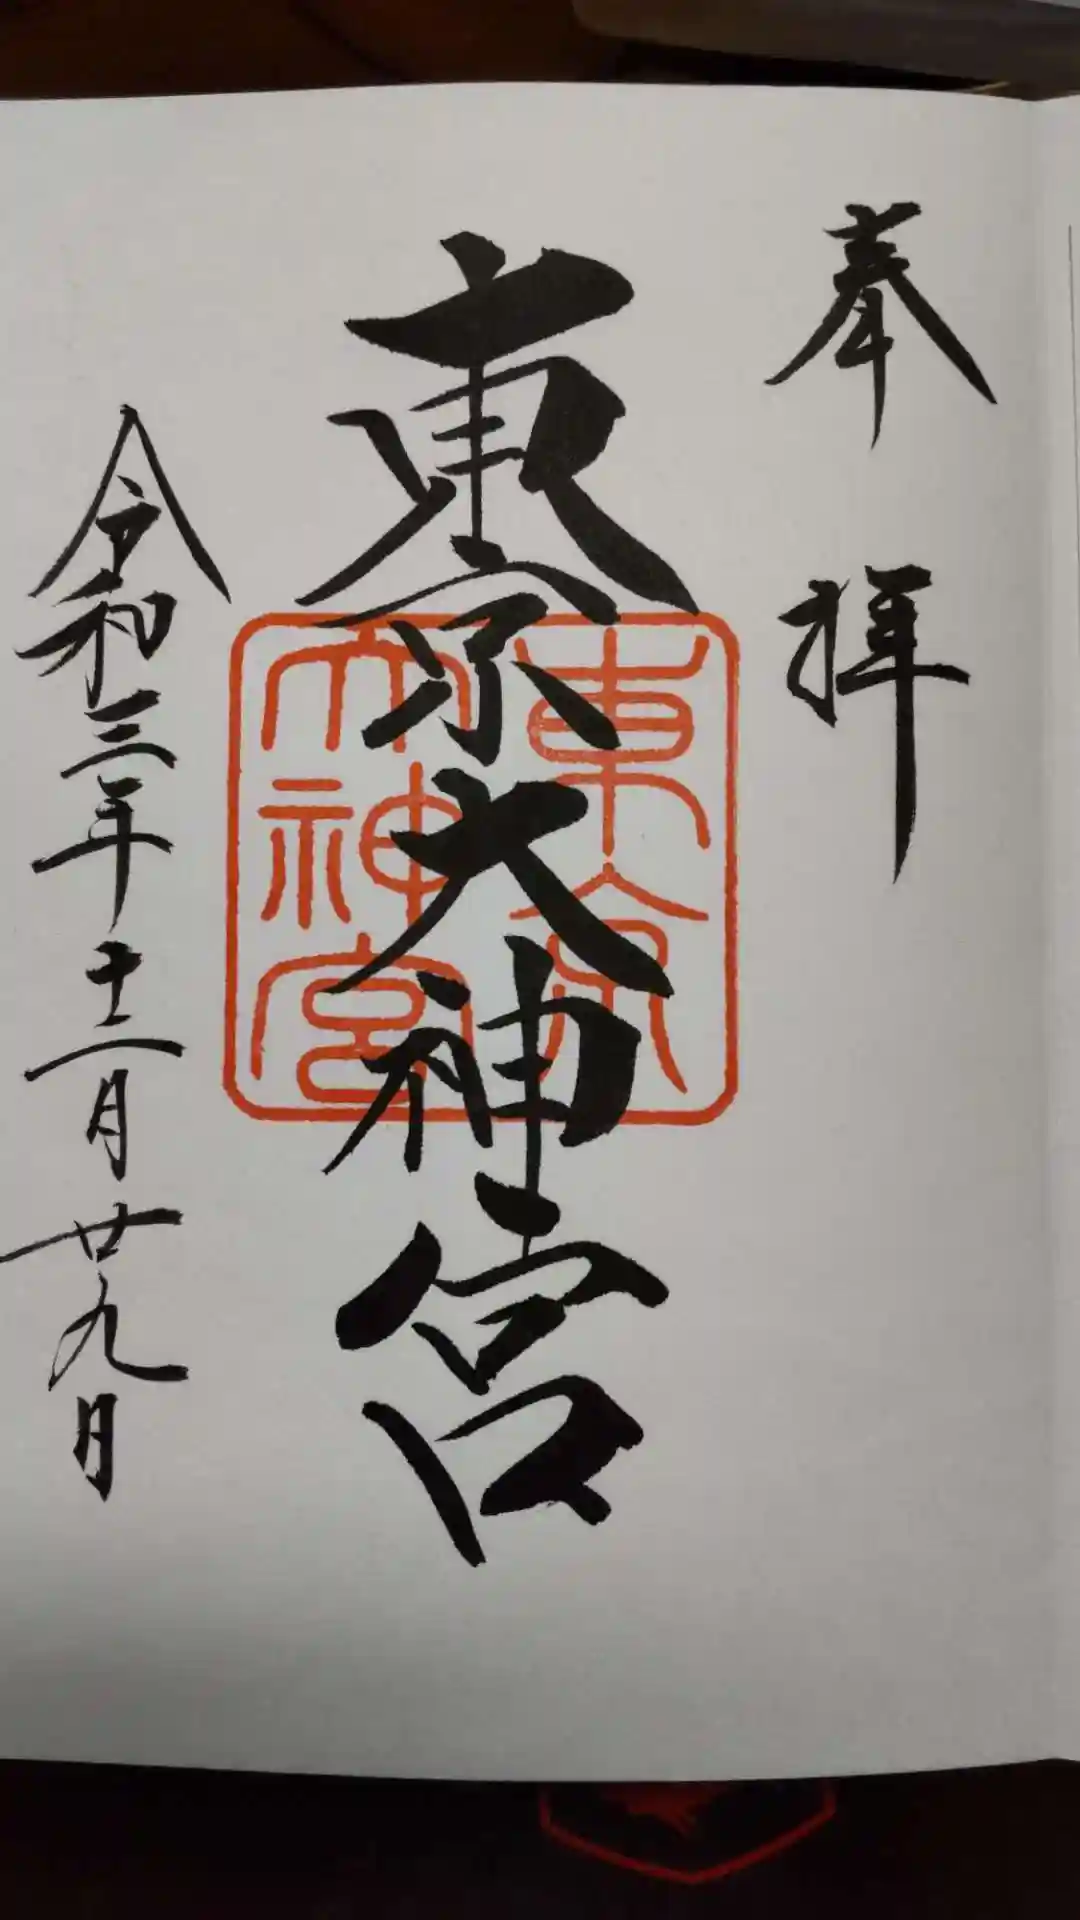 奉拝
東京大神宮
東京大神宮
令和三年十二月廿九日